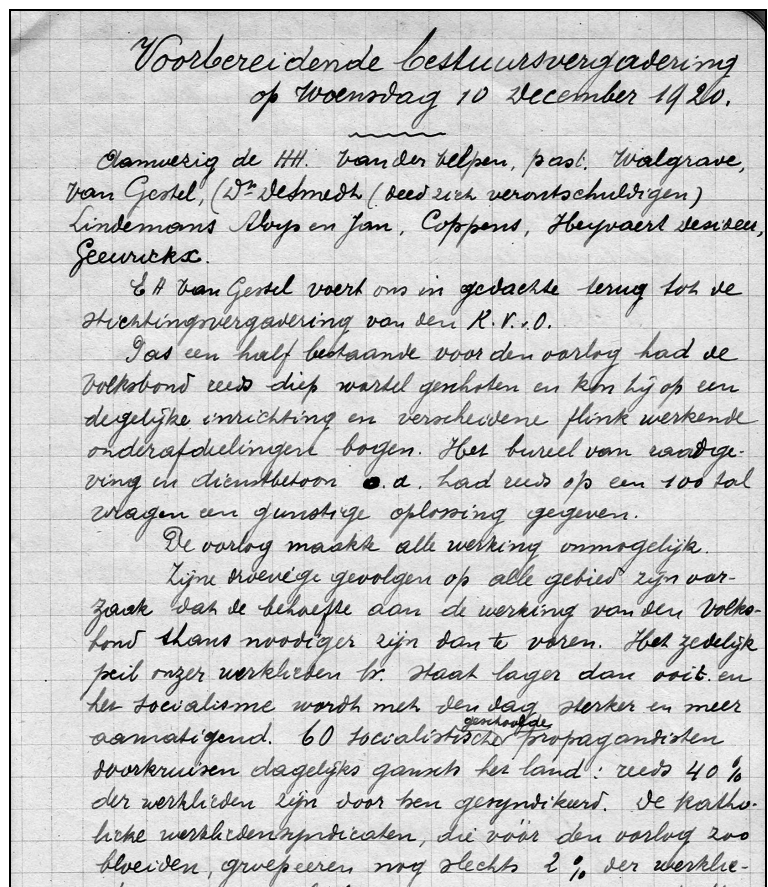 Voorbereidende bestuursvergadering
op Woensdag 10 December 1920.
Aanwezig de HH. Van der Velpen, past. Walgrave,
Van Gestel, (Dr Desmedt (deed zich verontschuldigen)
Lindemans Aloys en Jan, Coppens, Heyvaert Desideer,
Geeurickx.
EH Van Gestel voert ons in gedachte terug tot de
stichtingsvergadering van den K.V.O.
Pas een half bestaande voor den oorlog had de
Volksbond reeds diep wortel geschoten en kon hij op een
degelijke inrichting en verscheidene flink werkende
onderafdeelingen bogen. Het bureel van raadge-
ving en dienstbetoon o.a. had reeds op een 100 tal
vragen een gunstige oplossing gegeven.
De oorlog maakte alle werking onmogelijk.
Zijne droevige gevolgen op alle gebied zijn oor-
zaak dat de behoefte aan de werking van den Volks-
bond thans noodiger zijn dan te voren. Het zedelijk
peil onzer werklieden bv. staat lager dan ooit en
het socialisme wordt met den dag sterker en meer
aanmatigend. 60 socialistische geschoolde propagandisten
doorkruisen dagelijks gansch het land: reeds 40 %
der werklieden zijn door hen gesyndikeerd. De katho-
lieke werkliedensyndicaten, die vóór den oorlog zoo
bloeiden, groepeeren nog slechts 2 % der werklie-